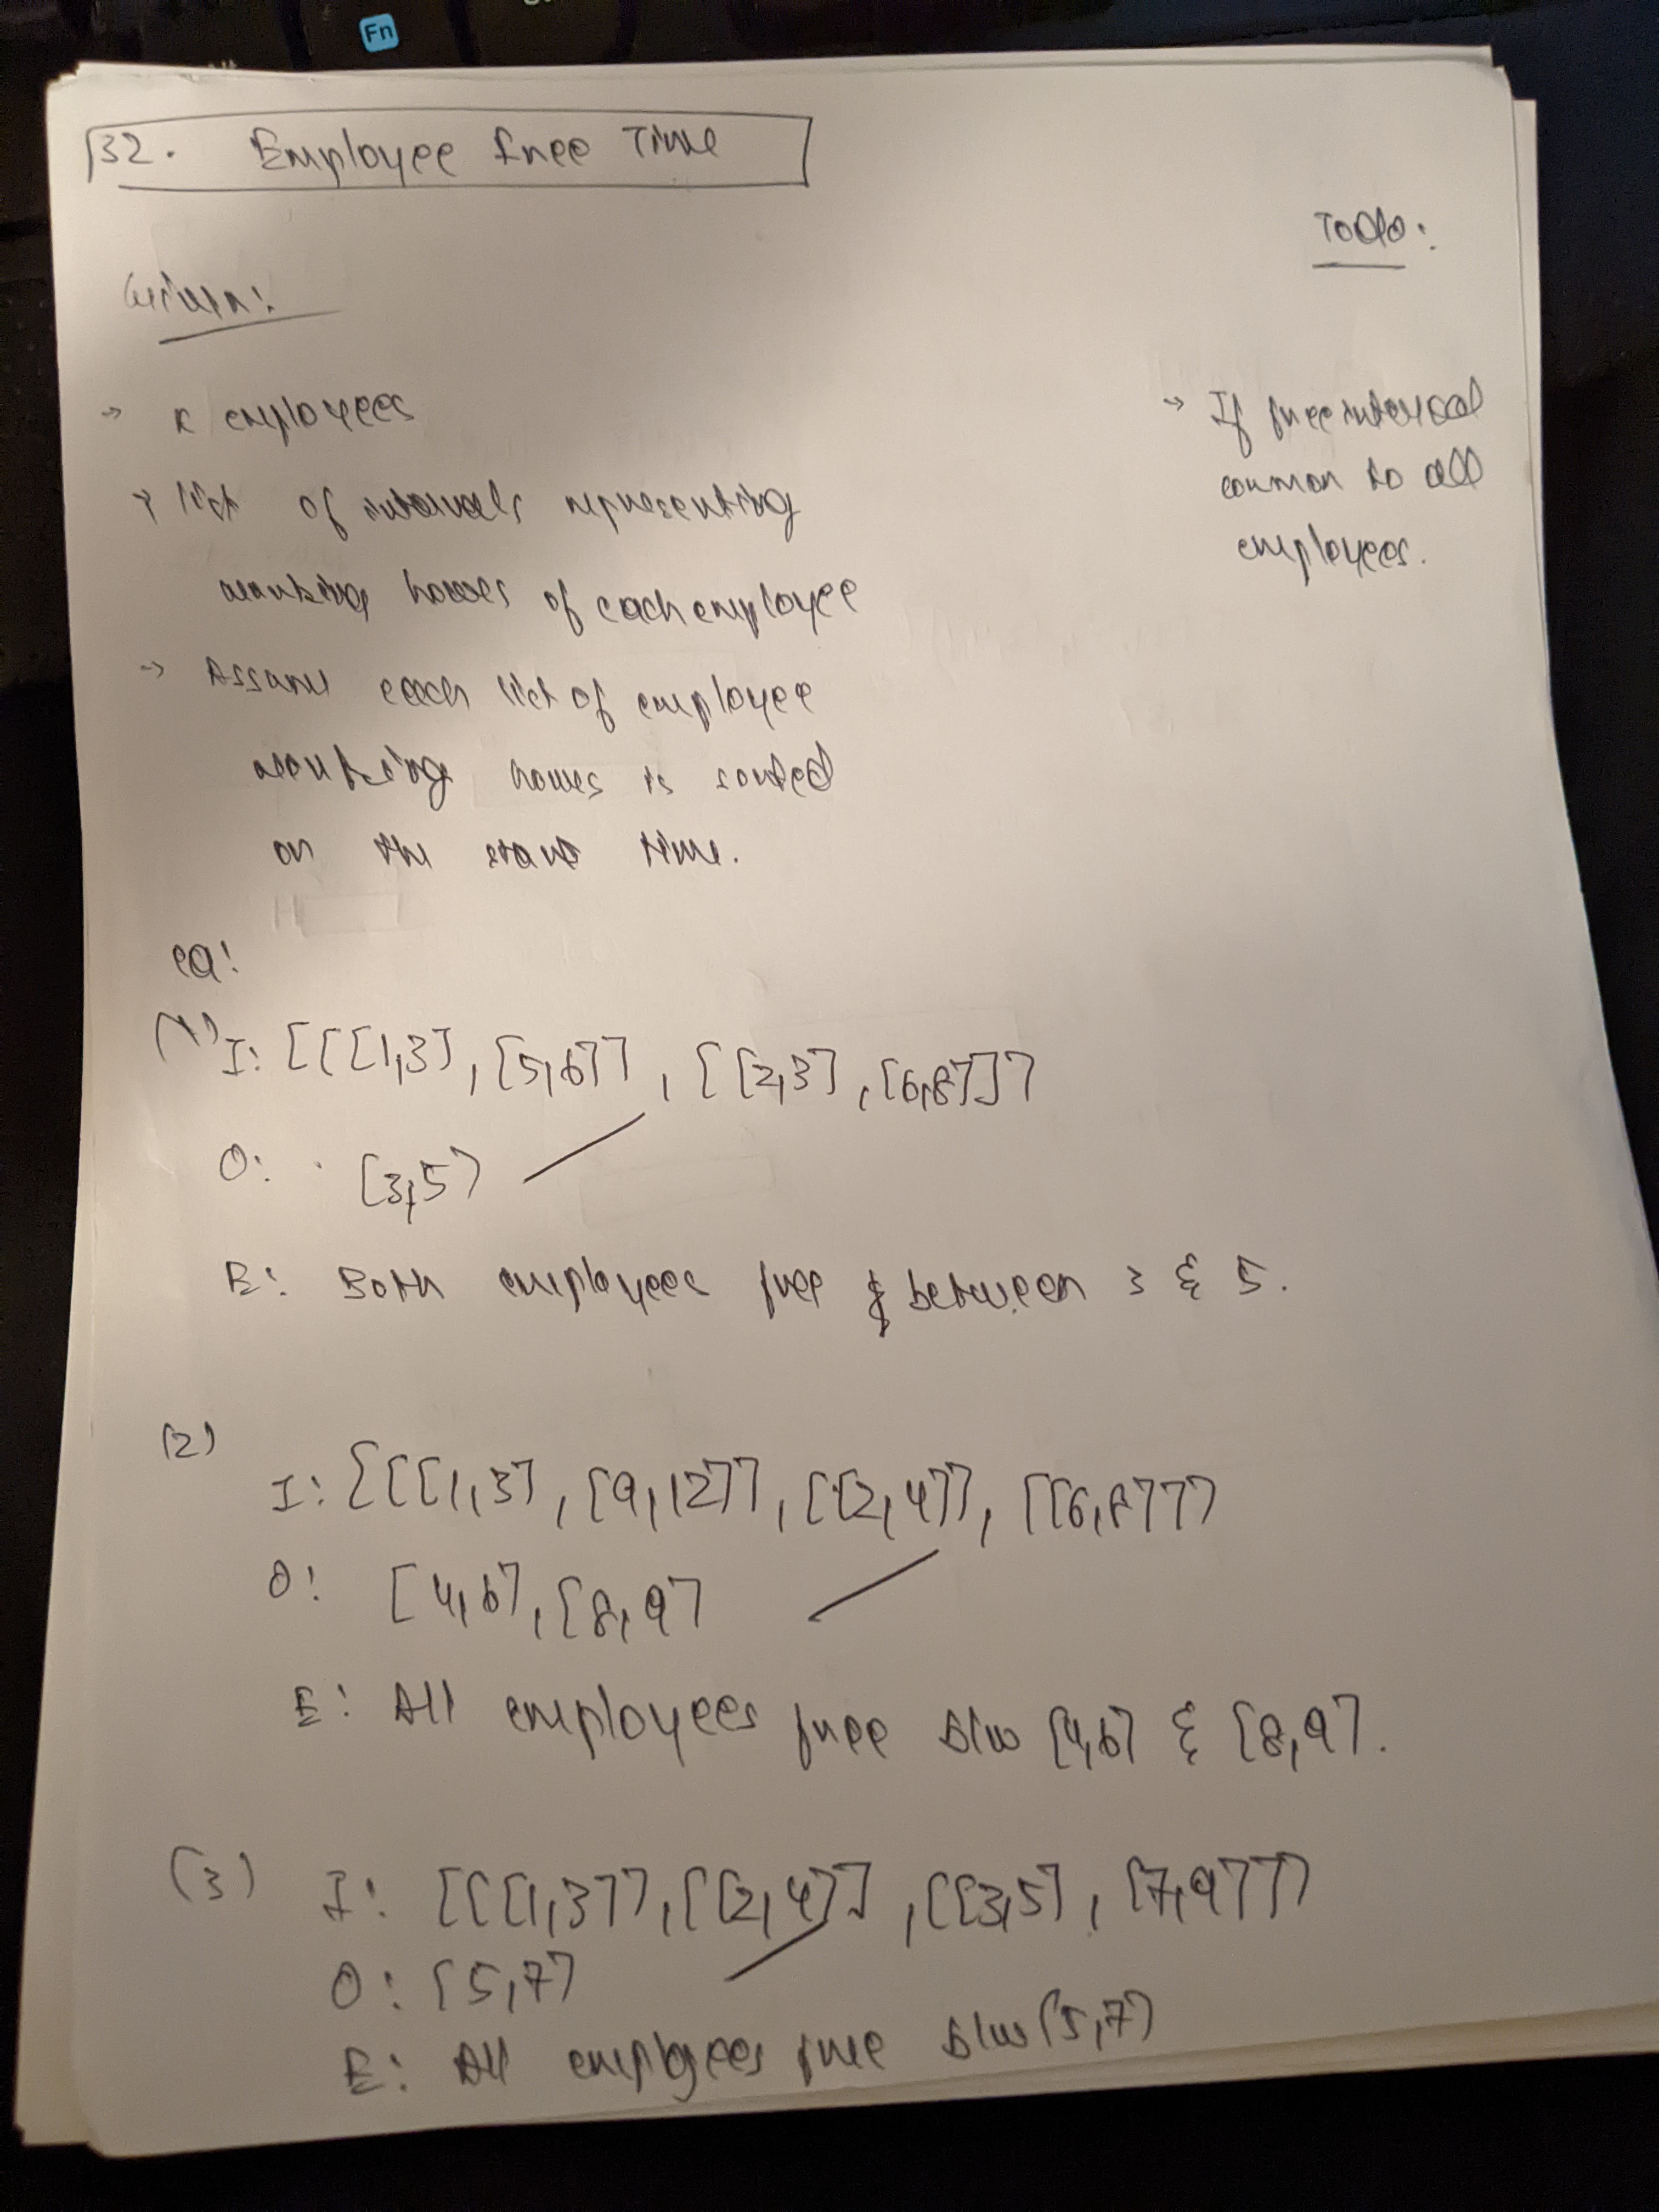 Fn
132. Employee free Time
Todo:
Given:
→ K employees
→ list of intervals representing
working hours of each employee
→ Assume each list of employee
working hours is sorted
on the start time.
→ If free interval
common to all
employees.
eg:
(1) I: [[[1,3], [5,6]], [[2,3], [6,8]]]
O: [3,5]
E: Both employees free between 3 & 5.
(2)
I: [[[1,3], [9,12]], [[2,4]], [[6,8]]]
O: [4,6], [8,9]
E: All employees free b/w [4,6] & [8,9].
(3) I: [[[1,3]], [[2,4]], [[3,5], [7,9]]]
O: [5,7]
E: All employees free b/w (5,7)